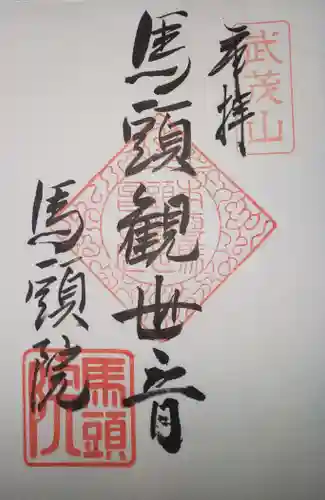 武茂山
奉拝
馬頭観世音
馬頭院
馬頭院